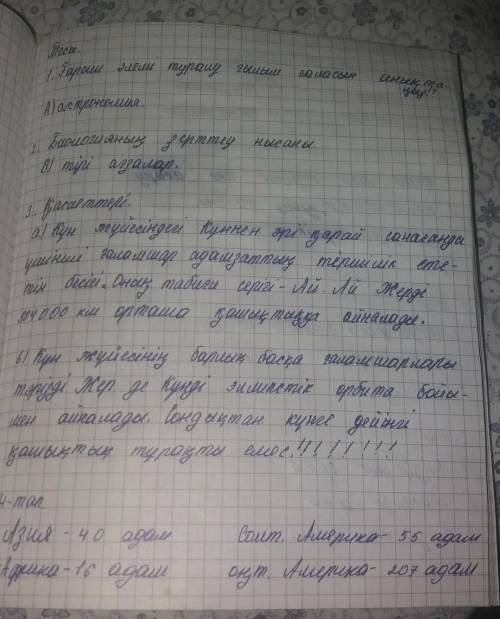 Тест.
1. Ғарыш әлемі туралы ғылым саласын анықта-
ңыз!?
А) астрономия.
2. Биологияның зерттеу нысаны.
В) тірі ағзалар.
3. Қасиеттері.
а) Күн жүйесіндегі Күннен әрі қарай санағанда
үшінші ғаламшар адамзаттың тіршілік ете-
тін бесігі. Оның табиғи серігі - Ай. Ай Жерді
384000 км орташа қашықтықта айналады.
б) Күн жүйесінің барлық басқа ғаламшарлары
тәрізді Жер де Күнді эллипстік орбита бойы-
мен айналады. Сондықтан күнге дейінгі
қашықтық тұрақты емес!!!!!!!
4-тап.
Азия - 40 адам Солт. Америка - 55 адам
Африка - 16 адам оңт. Америка - 207 адам